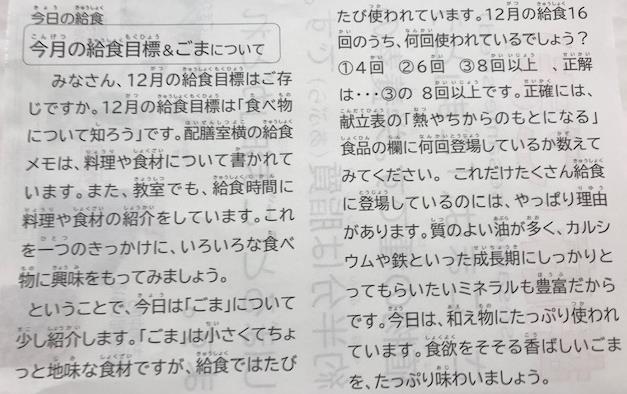 今日の給食
今月の給食目標&ごまについて
みなさん、12月の給食目標はご存
じですか。12月の給食目標は「食べ物
について知ろう」です。配膳室横の給食
メモは、料理や食材について書かれて
います。また、教室でも、給食時間に
料理や食材の紹介をしています。これ
を一つのきっかけに、いろいろな食べ
物に興味をもってみましょう。
ということで、今日は「ごま」について
少し紹介します。「ごま」は小さくてちょ
っと地味な食材ですが、給食ではたび
たび使われています。12月の給食16
回のうち、何回使われているでしょう?
①4回 ②6回 ③8回以上 、正解
は・・・③の 8回以上です。正確には、
献立表の「熱やちからのもとになる」
食品の欄に何回登場しているか数えて
みてください。 これだけたくさん給食
に登場しているのには、やっぱり理由
があります。質のよい油が多く、カルシ
ウムや鉄といった成長期にしっかりと
ってもらいたいミネラルも豊富だから
です。今日は、和え物にたっぷり使われ
ています。食欲をそそる香ばしいごま
を、たっぷり味わいましょう。